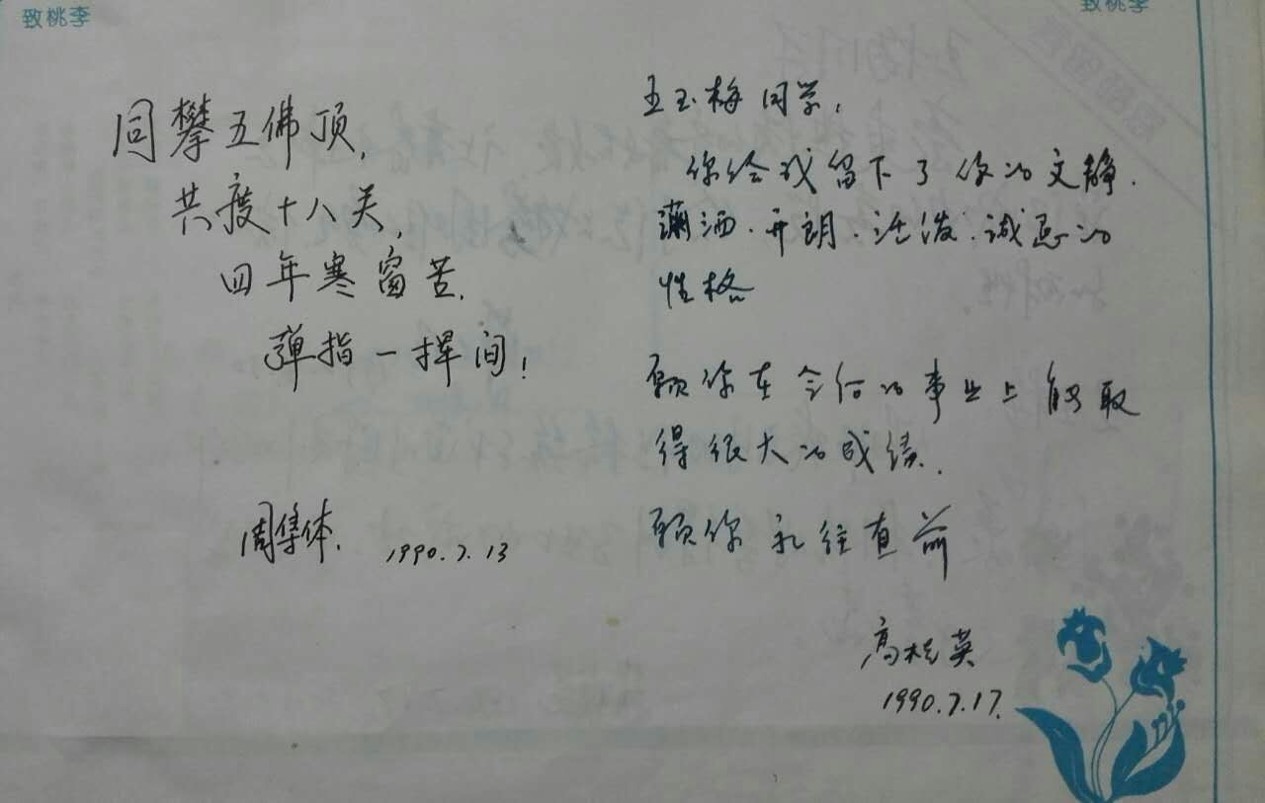 致桃李
致桃李
同攀五佛顶,
共度十八关,
四年寒窗苦,
弹指一挥间!
周集体. 1990.7.13
王玉梅同学,
你给我留下了你的文静.
潇洒.开朗.活泼.诚恳的
性格
愿你在今后的事业上能取
得很大的成绩.
愿你永往直前
高 英
1990.7.17.